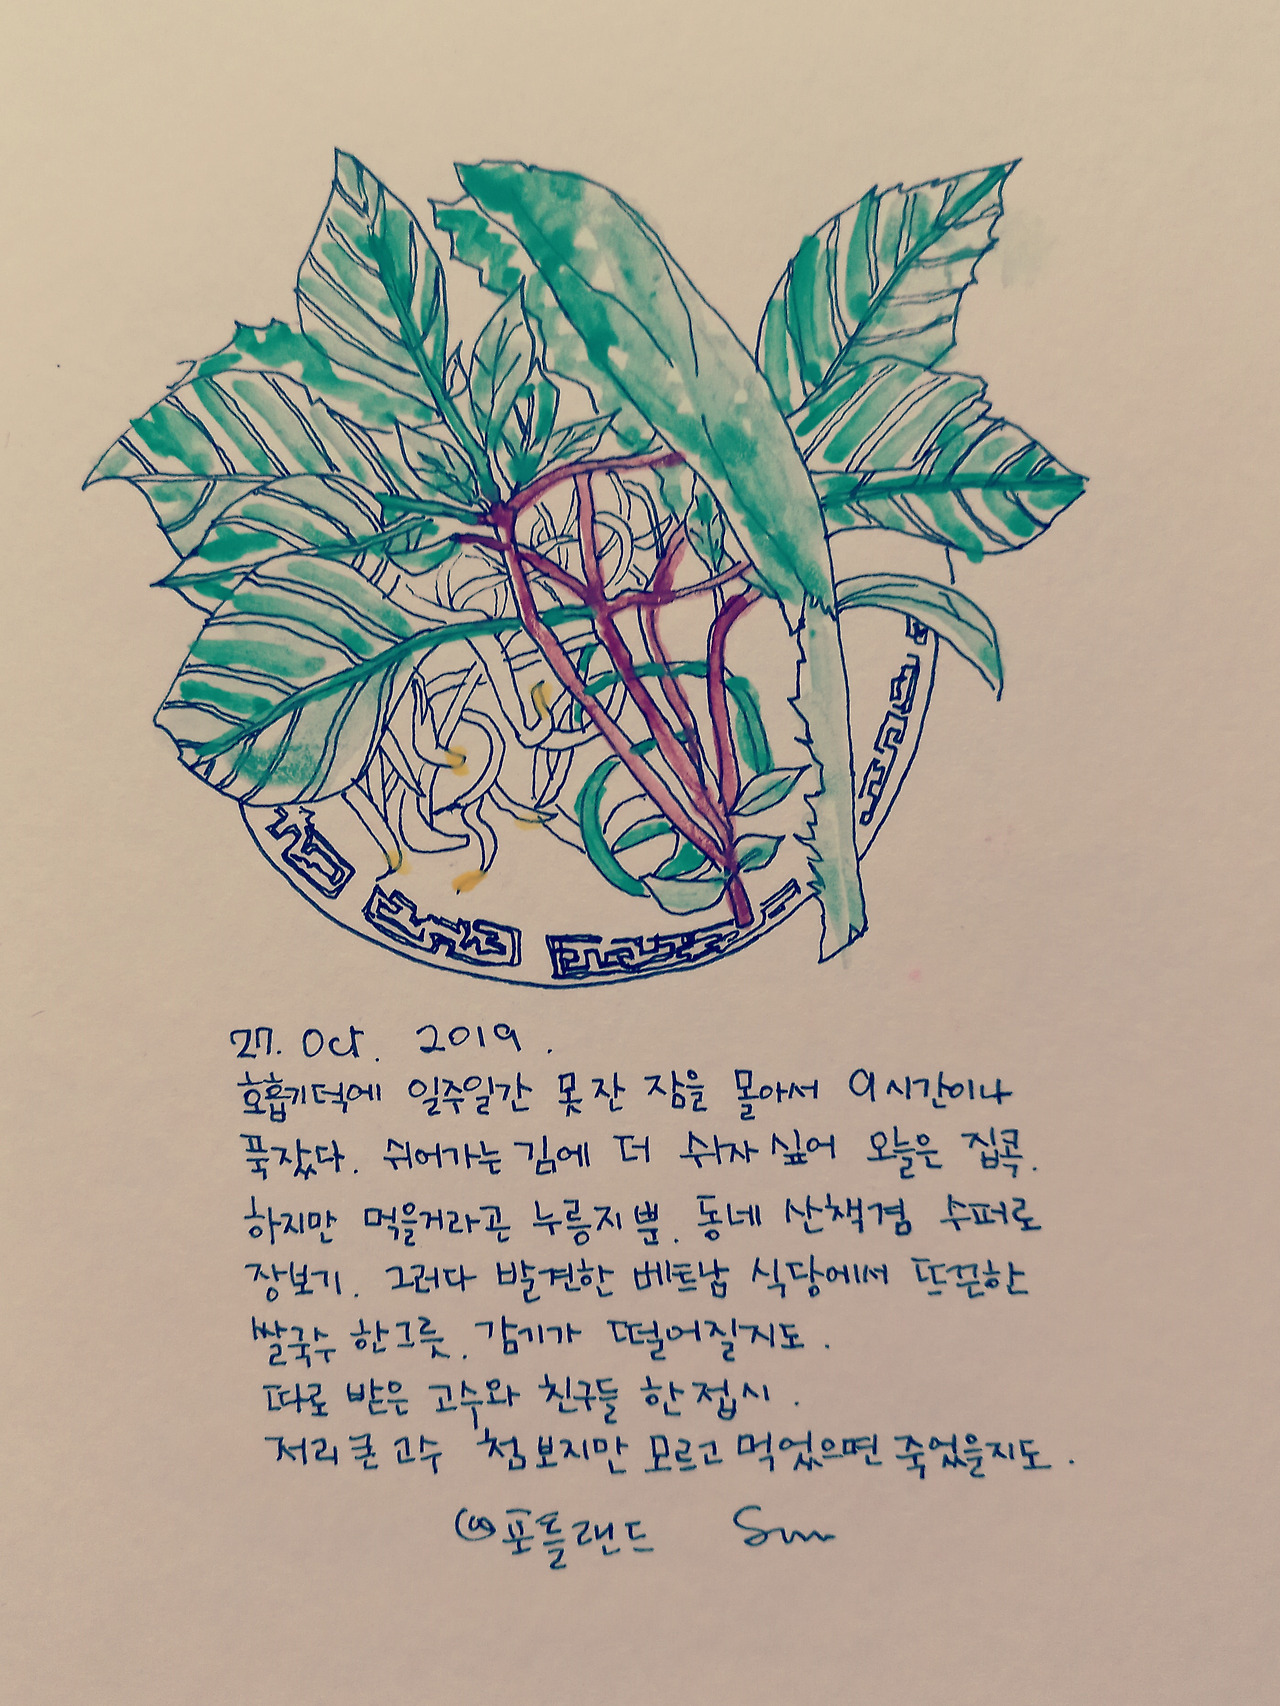 27. Oct. 2019.
호흡기덕에 일주일간 못잔 잠을 몰아서 9시간이나
푹잤다. 쉬어가는김에 더 쉬자싶어 오늘은 집콕.
하지만 먹을거라곤 누룽지뿐. 동네 산책겸 수퍼로
장보기. 그러다 발견한 베트남 식당에서 뜨끈한
쌀국수 한그릇. 감기가 떨어질지도.
따로 받은 고수와 친구들 한접시.
저리 큰 고수 첨보지만 모르고 먹었으면 죽었을지도.
@포틀랜드 Sun